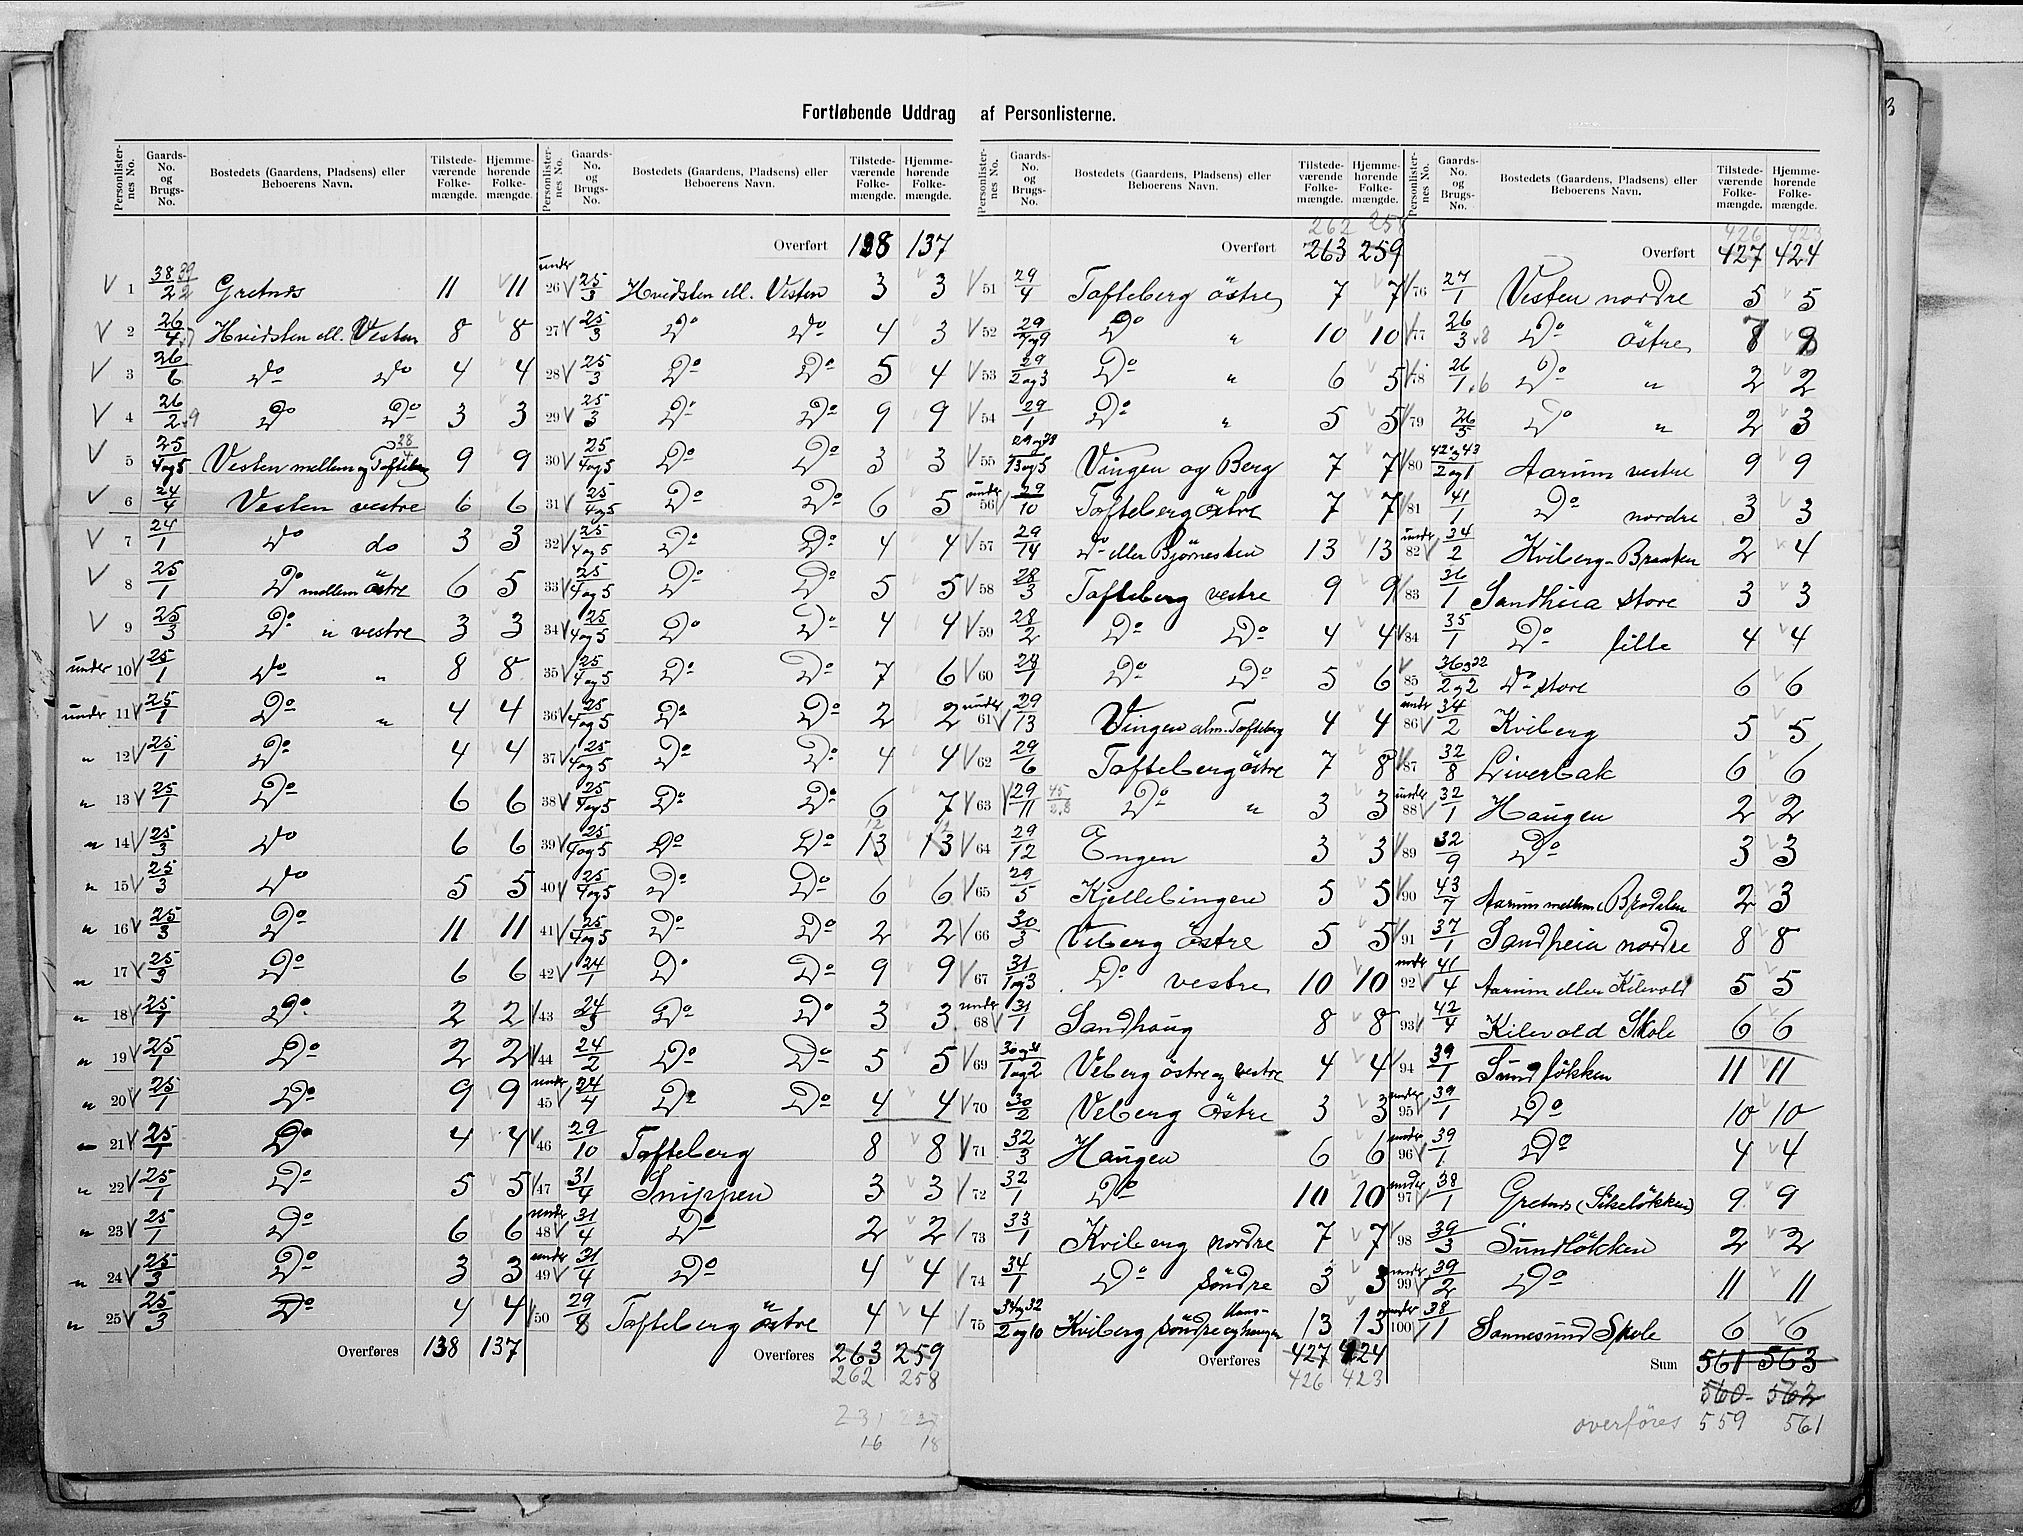 Fortløbende Uddrag af Personlisterne.
Personlister-nes No. | Gaards-No. og Brugs-No. | Bostedets (Gaardens, Pladsens) eller Beboerens Navn. | Tilstede-værende Folke-mængde. | Hjemme-hørende Folke-mængde.
1 38/2 39/2 Gretnes 11 11
2 26/4,7 Hvidsten ell. Vesten 8 8
3 26/6 Do Do 4 4
4 26/2,9 Do Do 3 3
5 25/4og5 28/4 Vesten mellem og Tofteberg 9 9
6 24/4 Vesten vestre 6 6
7 24/1 Do do 3 3
8 25/1 Do mellem östre 6 5
9 25/3 Do " vestre 3 3
under 10 25/1 Do " 8 8
under 11 25/1 Do " 4 4
" 12 25/1 Do 4 4
" 13 25/1 Do 6 6
" 14 25/3 Do 6 6
" 15 25/3 Do 5 5
" 16 25/3 Do 11 11
" 17 25/3 Do 6 6
" 18 25/1 Do 2 2
" 19 25/1 Do 2 2
" 20 25/1 Do 9 9
" 21 25/1 Do 4 4
" 22 25/1 Do 5 5
" 23 25/1 Do 6 6
" 24 25/3 Do 3 3
" 25 25/3 Do 4 4
Overføres 138 137
Personlister-nes No. | Gaards-No. og Brugs-No. | Bostedets (Gaardens, Pladsens) eller Beboerens Navn. | Tilstede-værende Folke-mængde. | Hjemme-hørende Folke-mængde.
Overført 138 137
under 26 25/3 Hvidsten ell. Vesten 3 3
27 25/3 Do Do 4 3
28 25/3 Do Do 5 4
29 25/3 Do Do 9 9
30 25/4og5 Do Do 3 3
31 25/4og5 Do Do 6 5
32 25/4og5 Do Do 4 4
33 25/4og5 Do Do 5 5
34 25/4og5 Do Do 4 4
35 25/4og5 Do Do 7 6
36 25/4og5 Do Do 2 2
37 25/4og5 Do Do 4 4
38 25/4og5 Do Do 6 7
39 25/4og5 Do Do 13 12 13 12
40 25/4og5 Do Do 6 6
41 25/4og5 Do Do 2 2
42 24/1 Do Do 9 9
43 24/3 Do Do 3 3
44 24/2 Do Do 5 5
under 45 24/4 Do Do 4 4
46 29/10 Tofteberg 8 8
47 31/4 Snippen 3 3
under 48 31/4 Do 2 2
under 49 31/4 Do 4 4
50 29/8 Tofteberg östre 4 4
Overføres 263 259
262 258
231
16 18
Personlister-nes No. | Gaards-No. og Brugs-No. | Bostedets (Gaardens, Pladsens) eller Beboerens Navn. | Tilstede-værende Folke-mængde. | Hjemme-hørende Folke-mængde.
262 258
Overført 263 259
51 29/4 Tofteberg östre 7 7
52 29/7og9 Do " 10 10
53 29/2og3 Do " 6 5
54 29/1 Do " 5 5
55 29og28/13og5 Vingen og Berg 7 7
under 56 29/10 Tofteberg östre 7 7
57 29/14 Do eller Bjørnesten 13 13
58 28/3 Tofteberg vestre 9 9
59 28/2 Do Do 4 4
60 28/1 Do Do 5 6
under 61 29/13 Vingen alm. Tofteberg 4 4
62 29/6 Tofteberg östre 7 8
63 29/11 45/2.8 Do " 3 3
64 29/12 Engen 3 3
65 29/5 Kjellebingen 5 5
66 30/3 Veberg östre 5 5
67 31/1og3 Do vestre 10 10
under 68 31/1 Sandhaug 8 8
69 30og31/1og2 Veberg östre og vestre 4 4
70 30/2 Veberg östre 3 3
71 32/3 Haugen 6 6
72 32/1 Do 10 10
73 33/1 Kviberg nordre 7 7
74 34/1 Do söndre 3 3
75 34og32/2og10 Kviberg söndre og haugen 13 13
Overføres 427 424
426 423
Personlister-nes No. | Gaards-No. og Brugs-No. | Bostedets (Gaardens, Pladsens) eller Beboerens Navn. | Tilstede-værende Folke-mængde. | Hjemme-hørende Folke-mængde.
426 423
Overført 427 424
76 27/1 Vesten nordre 5 5
77 26/3,8 Do östre 8
78 26/1,6 Do " 2 2
79 26/5 Do " 2 3
80 42og43/2og1 Aarum vestre 9 9
81 41/1 Do nordre 3 3
under 82 34/2 Kviberg-Braaten 2 4
83 36/1 Sandheia store 3 3
84 35/1 Do lille 4 4
85 36og32/2og2 Do store 6 6
under 86 34/2 Kviberg 5 5
87 32/8 Liverbak 6 6
under 88 32/1 Haugen 2 2
89 32/9 Do 3 3
90 43/7 Aarum mellem Bradalen 2 3
91 37/1 Sandheia nordre 8 8
under 92 41/4 Aarum eller Kilevold 5 5
93 42/4 Kilevold Skole 6 6
94 39/1 Sundløkken 11 11
under 95 39/1 Do 10 10
under 96 39/1 Do 4 4
under 97 38/1 Gretnes (Sikeløkken) 9 9
98 39/3 Sundløkken 2 2
under 99 39/2 Do 11 11
under 100 38/1 Sannesund Skole 6 6
Sum 561 563
560 562
overføres 559 561